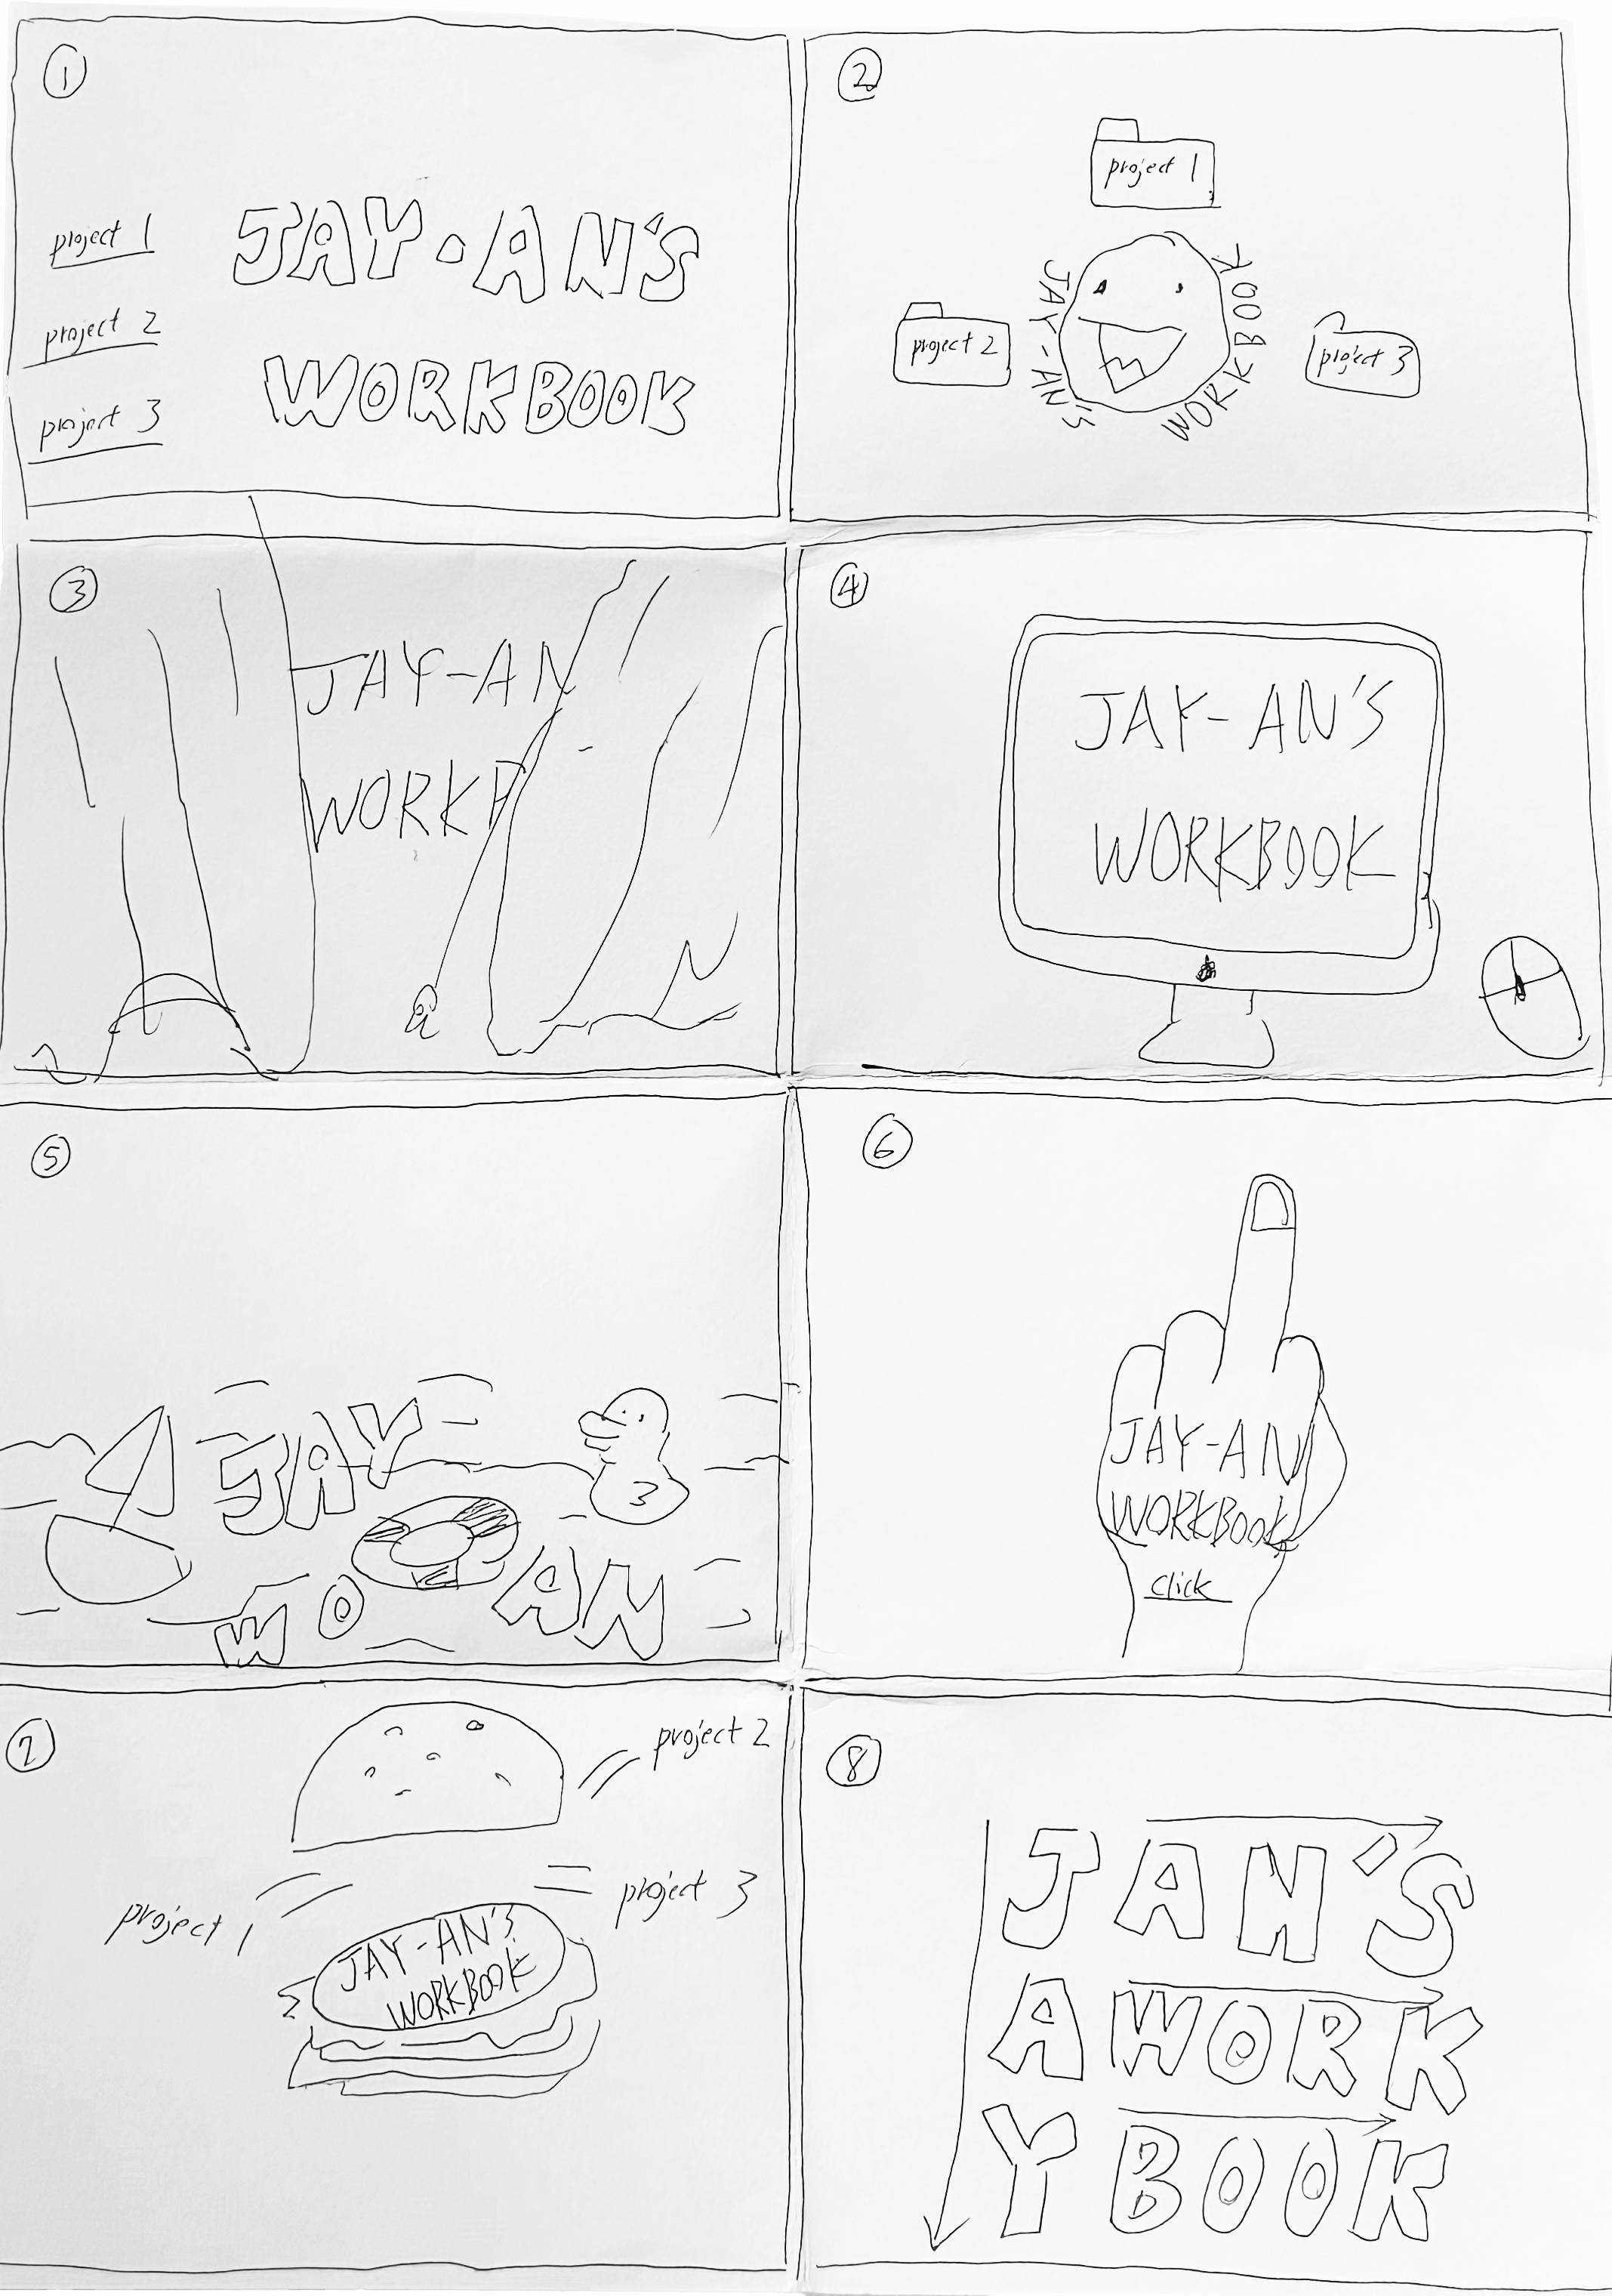 1
project 1
project 2
project 3
JAY-AN'S
WORKBOOK
2
project 1
project 2
project 3
JAY-AN'S WORKBOOK
3
JAY-AN
WORK
4
JAY-AN'S
WORKBOOK
5
JAY
AN
WO
6
JAY-AN
WORKBOOK
click
7
project 2
project 1
project 3
JAY-AN'S
WORKBOOK
8
JAN'S
AWORK
YBOOK